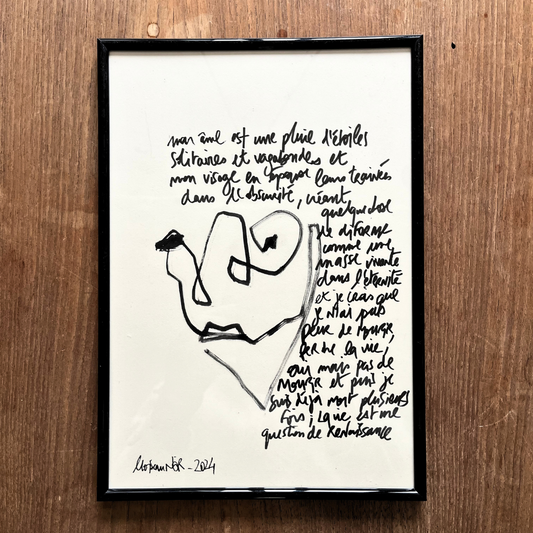 mon âme est une pluie d'étoiles
solitaires et vagabondes et
mon visage en épouse leurs trainées
dans l'obscurité, créant
quelque chose
de difforme
comme une
masse vivante
dans l'éternité
et je crois que
je n'ai pas
peur de mourir
perdre la vie,
oui mais pas de
mourir et puis je
suis déjà mort plusieurs
fois, la vie est une
question de renaissance
2024